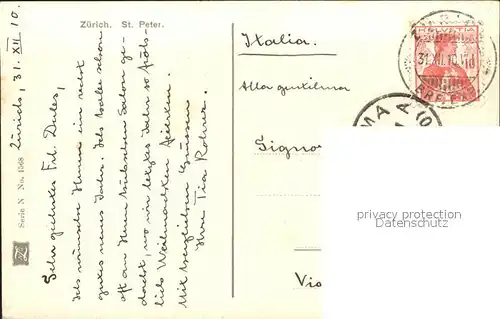 Zürich. St. Peter.
Zürich, 31. XII. 10.
Sehr geehrtes Frl. Dules,
Ich wünsche Ihnen ein recht
gutes neues Jahr. Ich habe schon
oft an Ihren hübschen Salon ge-
dacht, wo wir letztes Jahr so fröh-
lich Weihnachten feierten.
Mit herzlichen Grüssen
Ihre Tia Rohner.
Serie N No. 1568
Italia.
Alla gentilissima
Signo
Vi
HELVETIA
31.XII.10.
MA
privacy protection
watermark